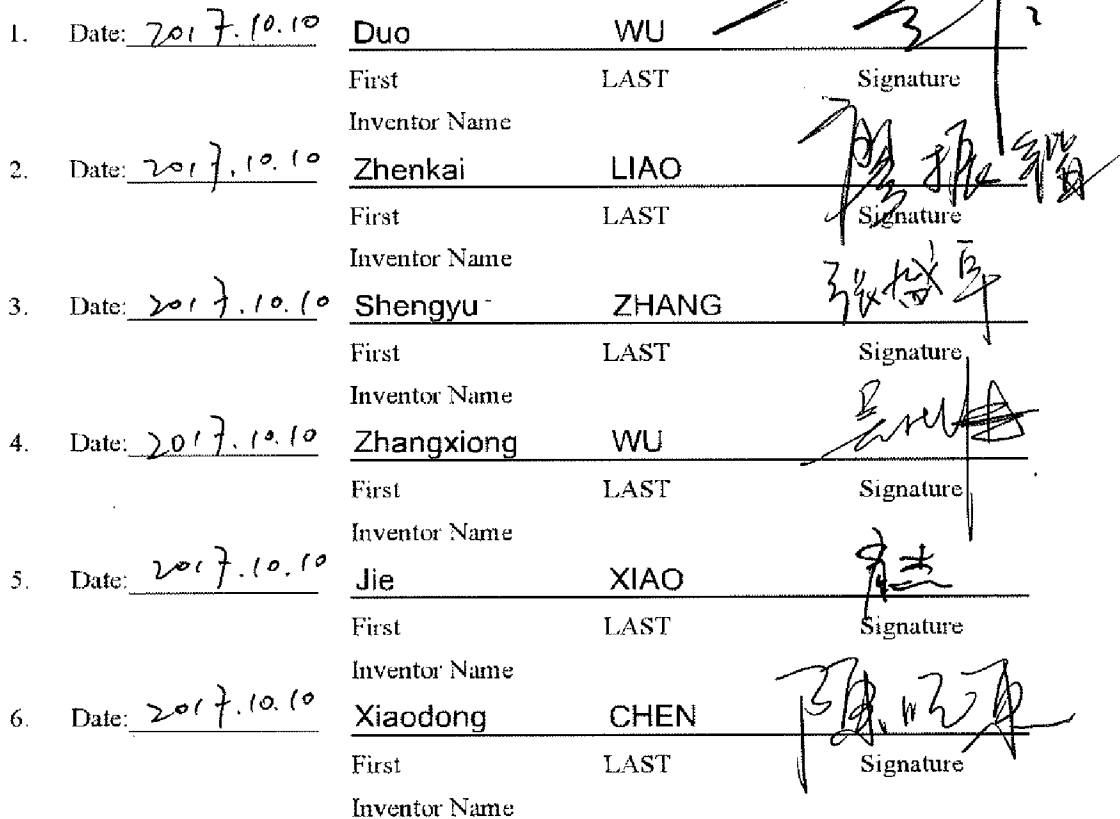 1. Date: 2017.10.10 Duo WU
First LAST Signature
Inventor Name
2. Date: 2017.10.10 Zhenkai LIAO 廖振锴
First LAST Signature
Inventor Name
3. Date: 2017.10.10 Shengyu ZHANG 张盛宇
First LAST Signature
Inventor Name
4. Date: 2017.10.10 Zhangxiong WU 吴
First LAST Signature
Inventor Name
5. Date: 2017.10.10 Jie XIAO 肖杰
First LAST Signature
Inventor Name
6. Date: 2017.10.10 Xiaodong CHEN 陈晓东
First LAST Signature
Inventor Name